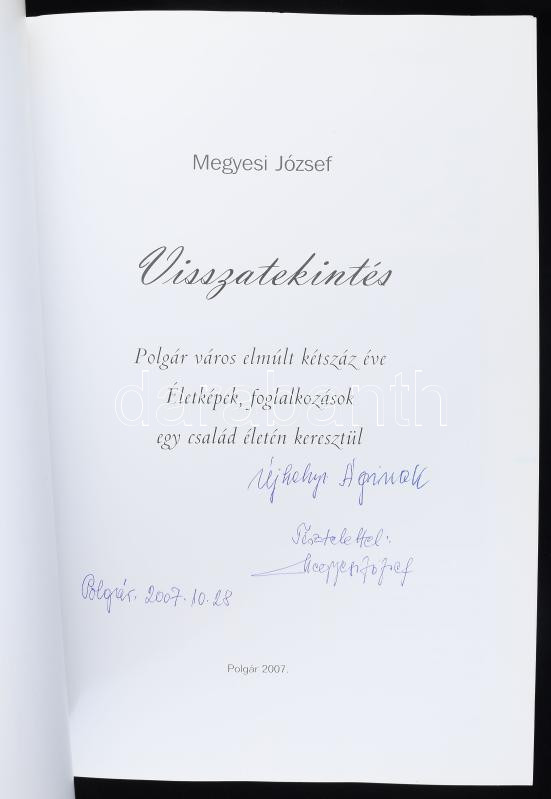 Megyesi József
Visszatekintés
Polgár város elmúlt kétszáz éve
Életképek, foglalkozások
darabanth
egy család életén keresztül
Újhelyi Áginak
Tisztelettel:
Megyesi József
Polgár. 2007. 10. 28
Polgár 2007.